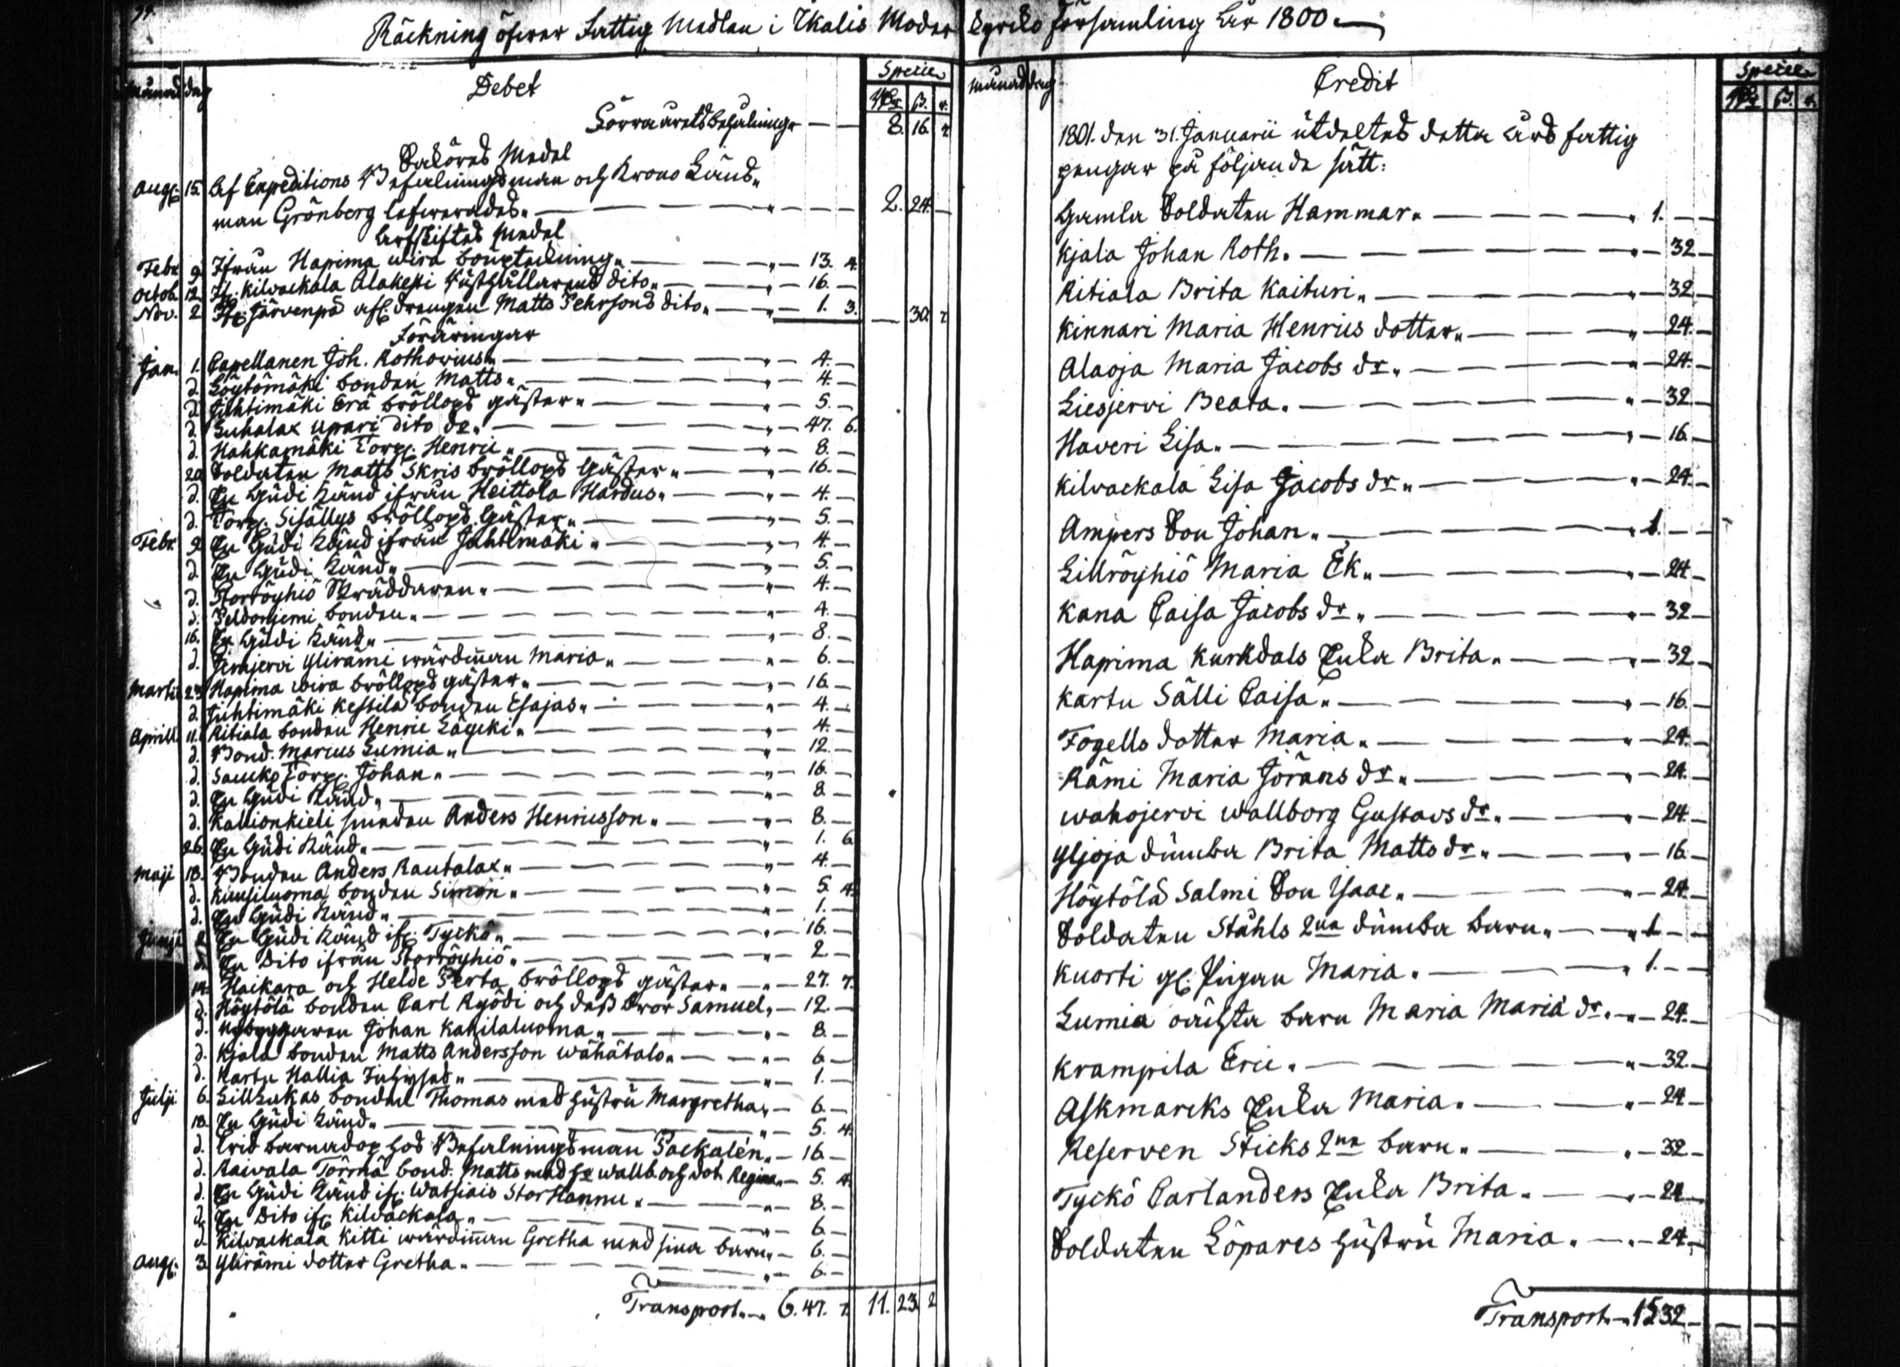 Räckning öfwer Fattig Medlen i Ikalis Moder Kyrko församling År 1800
månad dag Debet Specie
Rdr ß. r.
Förra årets behållning 8. 16. 2
Saköres Medel
Aug: 15. Af Expeditions Befalningsman och Krono Läns-
man Grönberg lefwererades 2. 24.
Arfskiftes Medel
Febr. 9. Ifrån Hapima wira bouptekning 13. 4.
Octob. 12. If. Kilvackala Alakesti Rusthållarens dito 16.
Nov. 2. If. Järvenpä afl. drengen Matts Pehrsons dito 1. 3. 30. 7
Föräringar
Jan. 1. Capellanen Joh. Rothovius 4.
d. Löytömäki bonden Matts 4.
d. Juhtimäki Erä bröllops gäster 5.
d. Luhalax Upari dito do 47. 6.
d. Hahkamäki Torp. Henric 8.
20. Soldaten Matts Skris bröllops Gäster 16.
d. En Gudi Känd ifrån Heittola Hardus 4.
d. Torp. Sisällys bröllops Gäster 5.
Febr. 2. En Gudi känd ifrån Juhtimäki 4.
d. En Gudi känd 5.
d. Storröyhiö Skräddaren 4.
d. Peldoniemi bonden 4.
16. En Gudi känd 8.
d. Jemjervi Ylirämi wärdinnan Maria 6.
Martii 23. Hapima wira bröllops gäster 16.
d. Juhtimäki Kestilä bonden Esajas 4.
Aprill. 11. Ritiala bonden Henric Läyki 4.
d. Bond. Marcus Lumia 12.
d. Saucko Torp. Johan 16.
d. En Gudi Känd 8
d. Kallionkieli smeden Anders Henricsson 8.
26. En Gudi Känd 1. 6
Maji 18. Bonden Anders Rautalax 4.
d. Kuusiluoma bonden Simon 5. 4.
d. En Gudi Känd 1.
Junii En Gudi Känd if. Tyckö 16.
d. En Dito ifrån Storröyhiö 2
14. Haikara och Helde Perta bröllops gäster 27. 7.
d. Höytölä bonden Carl Ryödi och dess bror Samuel 12.
d. Nybyggaren Johan Kahilaluoma 8.
d. Kjala bonden Matts Andersson wähätalo 6
d. Kartu Hallia 1.
Julji 6. Lillsukas bonden Thomas med hustru Margretha 6
18. En Gudi Känd 5. 4.
d. Wid barnadop hos Befalningsman Packalén 16
d. Raivala Törmä bond. Matts med hu wallb och dot. Regina 5. 4.
d. En Gudi Känd if. Watsiais StorHannu 8.
d. En Dito if. Kilvackala 6
d. Kilvackala Kitti wärdinnan Gretha med sina barn 6
Aug: 3. Ylirämi dotter Gretha 6
Transport 6. 47. 7. 11. 23. 2
månad dag Credit Specie
Rdr ß. r.
1801. den 31. Januarii utdeltes detta års fattig
pengar på följande sätt:
Gamla Soldaten Hammar 1.
Kjala Johan Roth 32
Ritiala Brita Kaituri 32
Kinnari Maria Henrics dotter 24.
Alaoja Maria Jacobs dr 24.
Liesjervi Beata 32
Haveri Lisa 16.
Kilvackala Lisa Jacobs dr 24.
Ampers Son Johan 1.
Lillröyhiö Maria Ek 24
Kana Caisa Jacobs dr 32
Hapima Kurkdals Enka Brita 32
Kartu Sälli Caisa 16.
Fogells dotter Maria 24.
Rämi Maria Jörans dr 24.
wahojervi wallborg Gustavs dr 24.
Yljoja dumba Brita Matts dr 16.
Höytölä Salmi Son Ysaac 24.
Soldaten Ståhls 2ne dumba barn 1.
Kuorti gl. Pigan Maria 1.
Lumia oächta barn Maria Maria dr 24.
Krampila Eric 32
Askmarcks Enka Maria 24
Reserven Sticks 2ne barn 32
Tyckö Carlanders Enka Brita 24
Soldaten Löpares hustru Maria 24
Transport 15 32